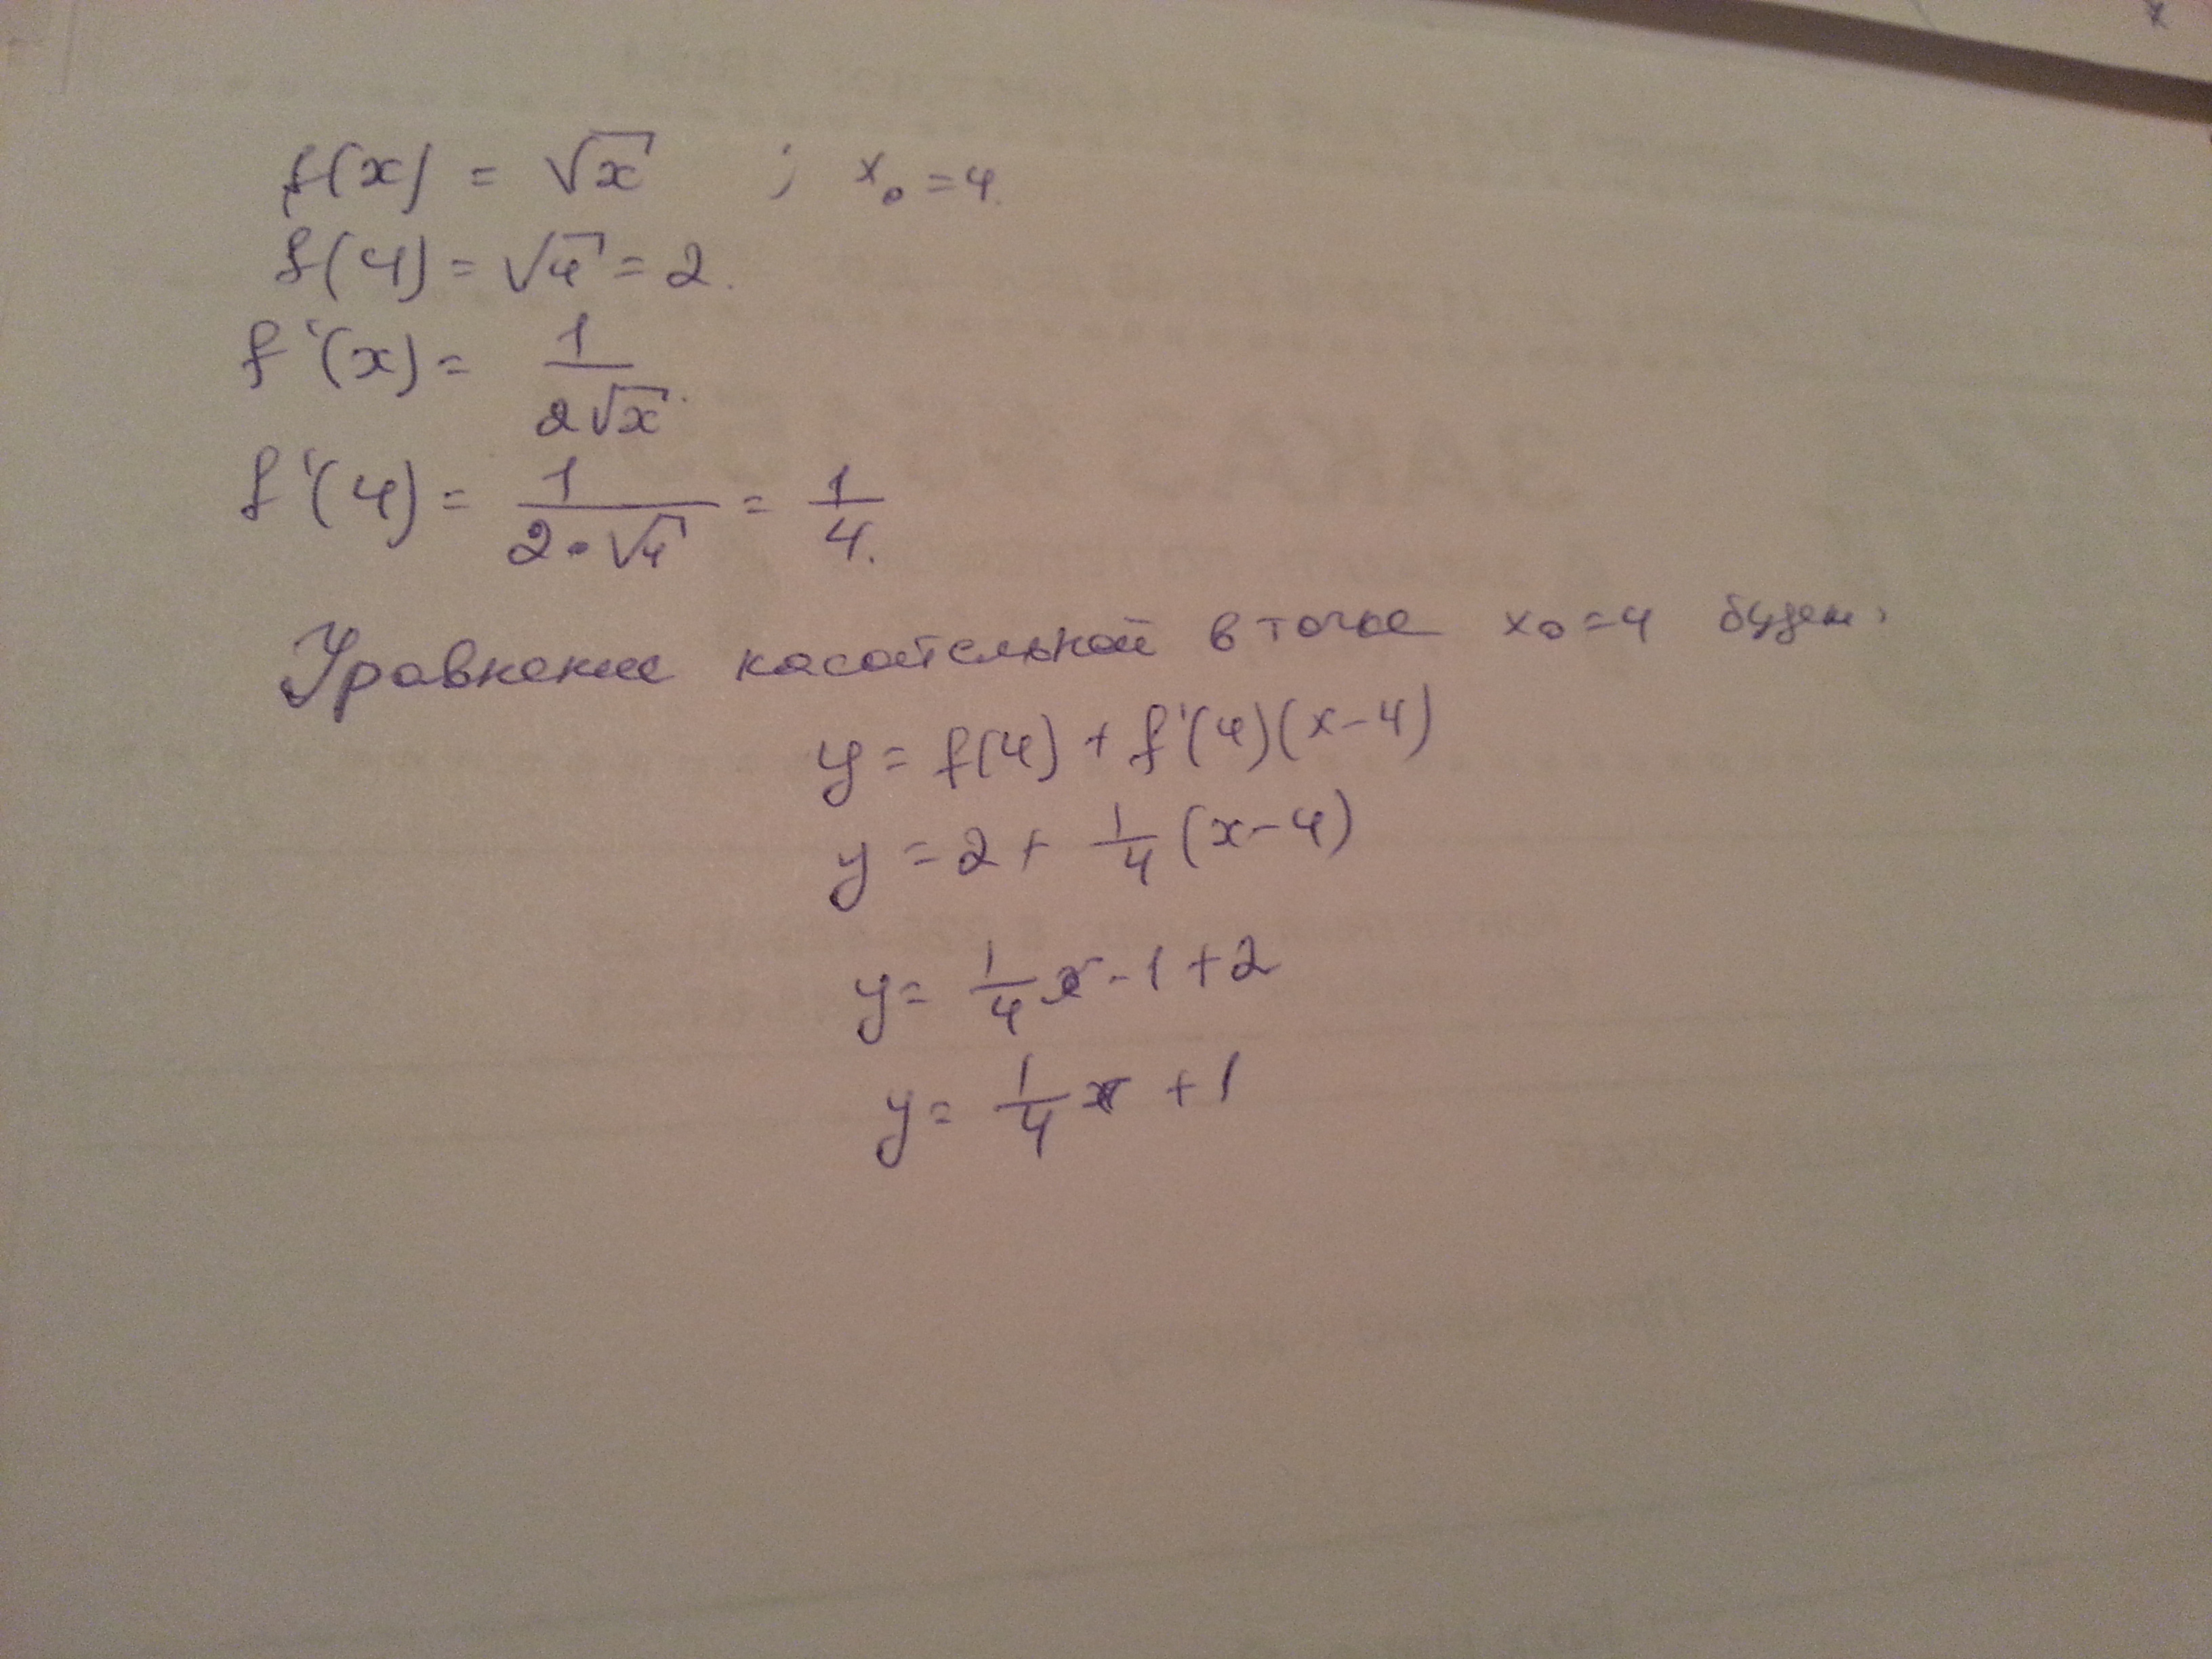 f(x) = √x ; x₀ = 4.
f(4) = √4 = 2.
f'(x) = 1/(2√x).
f'(4) = 1/(2·√4) = 1/4.
Уравнение касательной в точке x₀ = 4 будет:
y = f(4) + f'(4)(x-4)
y = 2 + 1/4 (x-4)
y = 1/4 x - 1 + 2
y = 1/4 x + 1